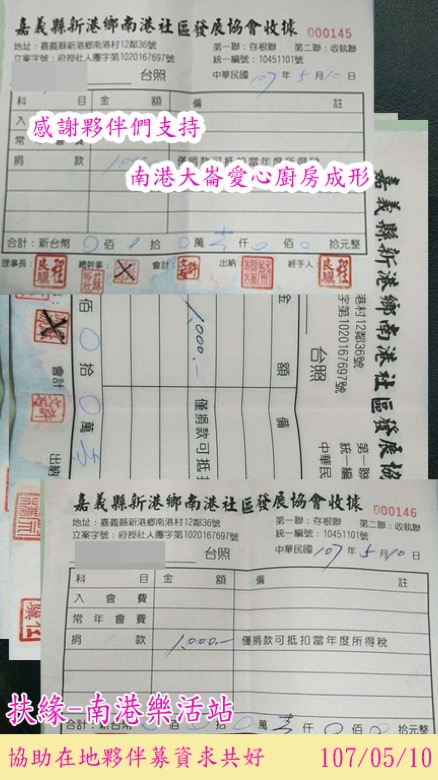 嘉義縣新港鄉南港社區發展協會收據 000145
地址:嘉義縣新港鄉南港村12鄰36號 第一聯:存根聯 第二聯:收執聯
立案字號:府授社人團字第1020167697號 統一編號:10451101號
台照 中華民國 107 年 5 月 10 日
科 目 金 額 備 註
入
感謝夥伴們支持
常 會費
捐 款 1,000.— 僅捐款可抵扣當年度所得稅
南港大崙愛心廚房成形
合計:新台幣 0 佰 0 拾 0 萬 壹 仟 0 佰 0 拾元整
理事長: 總幹事: 會計: 出納: 經手人:
嘉義縣新港鄉南港社區發展協
港村12鄰36號 第一聯
字第1020167697號 統一編
台照 中華民
金 額 備
1,000.— 僅捐款可抵
佰 0 拾 0 萬 壹
會計 出納
嘉義縣新港鄉南港社區發展協會收據 000146
地址:嘉義縣新港鄉南港村12鄰36號 第一聯:存根聯 第二聯:收執聯
立案字號:府授社人團字第1020167697號 統一編號:10451101號
台照 中華民國 107 年 5 月 10 日
科 目 金 額 備 註
入 會 費
常 年 會 費
捐 款 1,000.— 僅捐款可抵扣當年度所得稅
扶緣-南港樂活站
合計:新台 佰 拾 0 萬 壹 仟 0 佰 0 拾元整
協助在地夥伴募資求共好 107/05/10